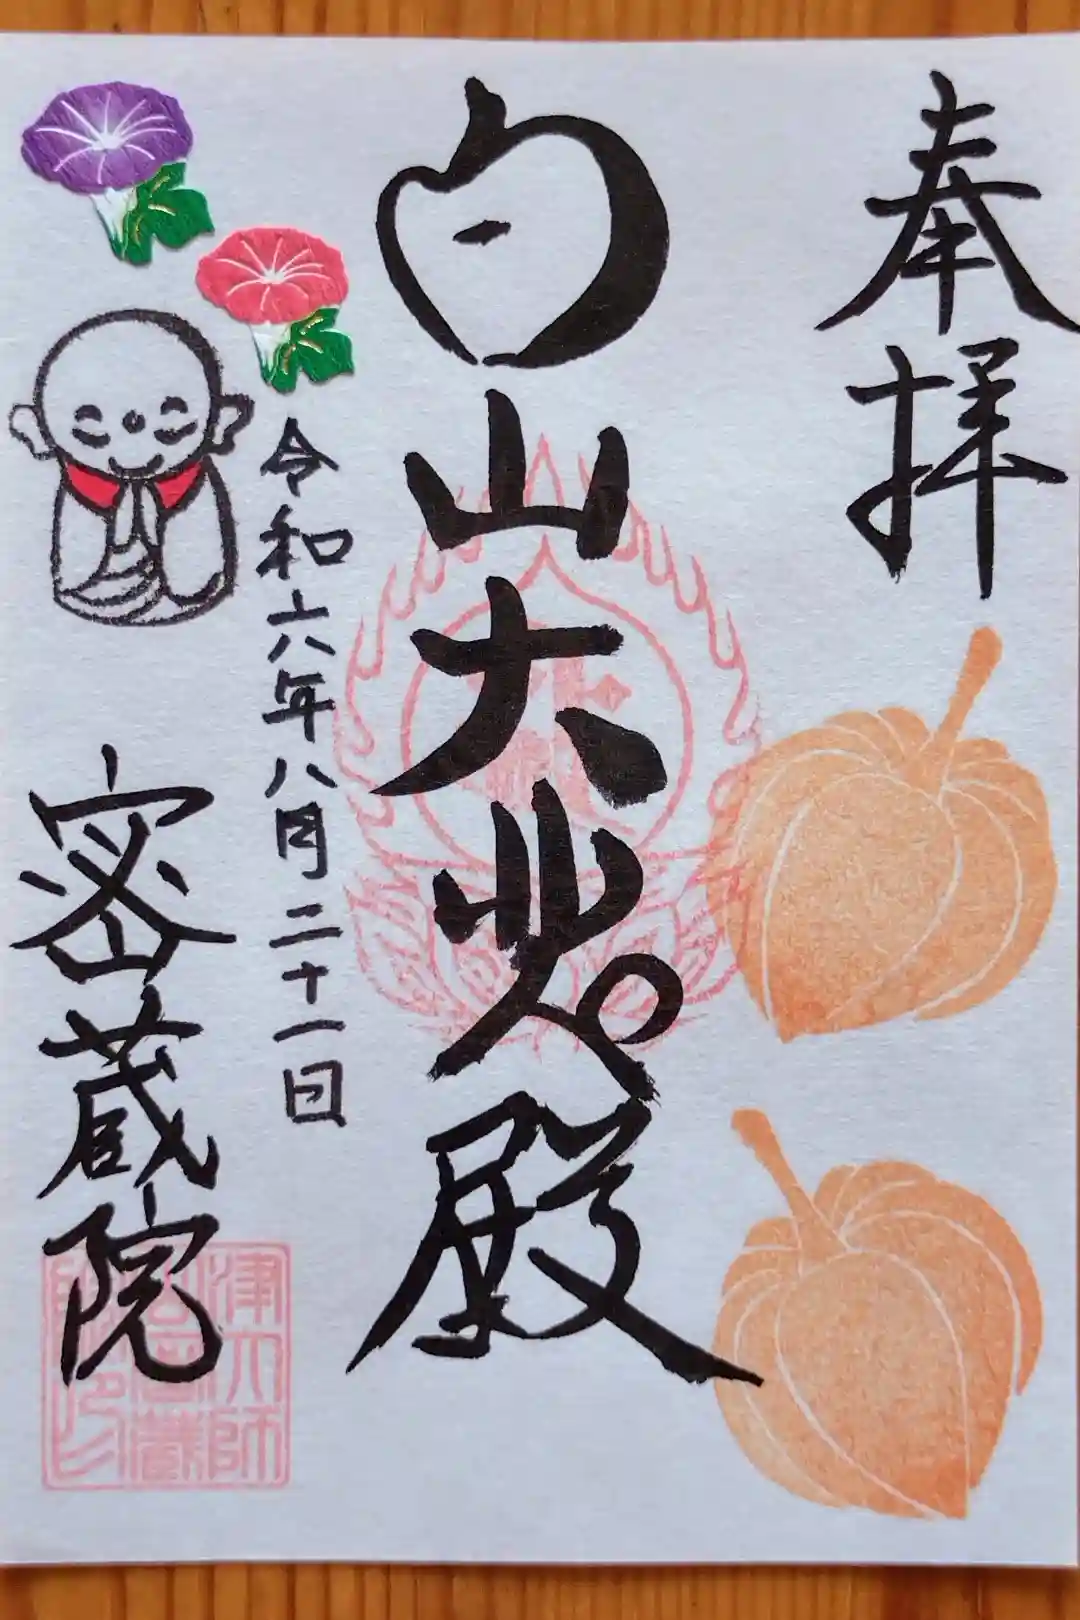 奉拝
白山大悲殿
令和六年八月二十一日
密蔵院
津大師